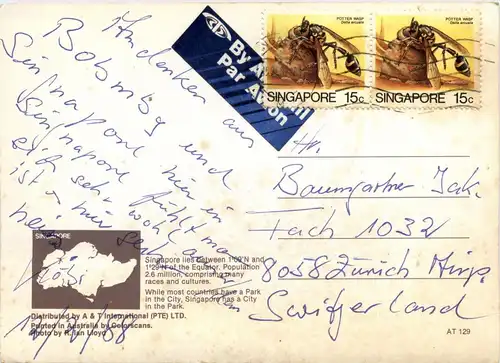 POTTER WASP
Delta arcuata
SINGAPORE 15c
POTTER WASP
Delta arcuata
SINGAPORE 15c
By Air Mail
Par Avion
Andenken aus
und
Singapore hier in
fühlt man
sich sehr wohl
ist
Hr.
Baumgartner Jak.
Fach 1032
8058 Zürich
Switzerland
SINGAPORE
Singapore lies between 1°09'N and
1°29'N of the Equator. Population
2.6 million, comprising many
races and cultures.
While most countries have a Park
in the City, Singapore has a City
in the Park.
Distributed by A & T International (PTE) LTD.
Printed in Australia by Colorscans.
Photo by R. Ian Lloyd
AT 129